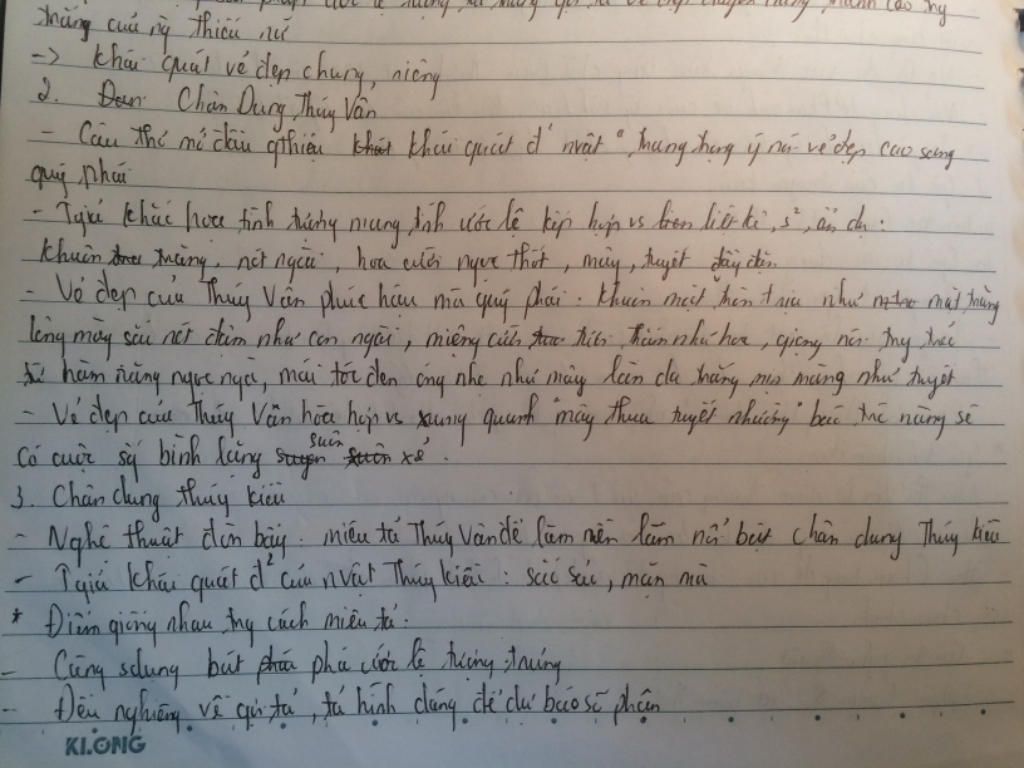 trắng của ng thiếu nữ
=> khái quát vẻ đẹp chung, riêng
2. Chân Dung Thúy Vân
- Câu thơ mở đầu gthiệu khái quát đ² nvật "trang trọng ý nói vẻ đẹp cao sang
quý phái
- Tgiả khắc họa tính ước lệ kết hợp vs liệt kê, s², ẩn dụ:
khuôn trăng, nét ngài, hoa cười ngọc thốt, mây, tuyết đầy đặn
- Vẻ đẹp của Thúy Vân phúc hậu mà quý phái. Khuôn mặt tròn trịa như mặt trăng
lông mày sắc nét đậm như con ngài, miệng cười thắm như hoa, giọng nói
hàm răng ngọc ngà, mái tóc đen óng nhẹ như mây làn da trắng mịn màng như tuyết
- Vẻ đẹp của Thúy Vân hòa hợp vs xung quanh "mây thua tuyết nhường" báo nàng sẽ
có cuộc sg bình lặng suôn sẻ.
3. Chân dung thúy kiều
- Nghệ thuật đòn bẩy: miêu tả Thúy Vân để làm nền làm nổi bật chân dung Thúy kiều
- Tgiả khái quát đ² của nvật Thúy kiều: sắc sảo, mặn mà
* Điểm giống nhau trg cách miêu tả:
- Cùng sdụng bút phá ước lệ tượng trưng
- Đều nghiêng về gợi tả, tả hình dáng để dự báo số phận
KLONG